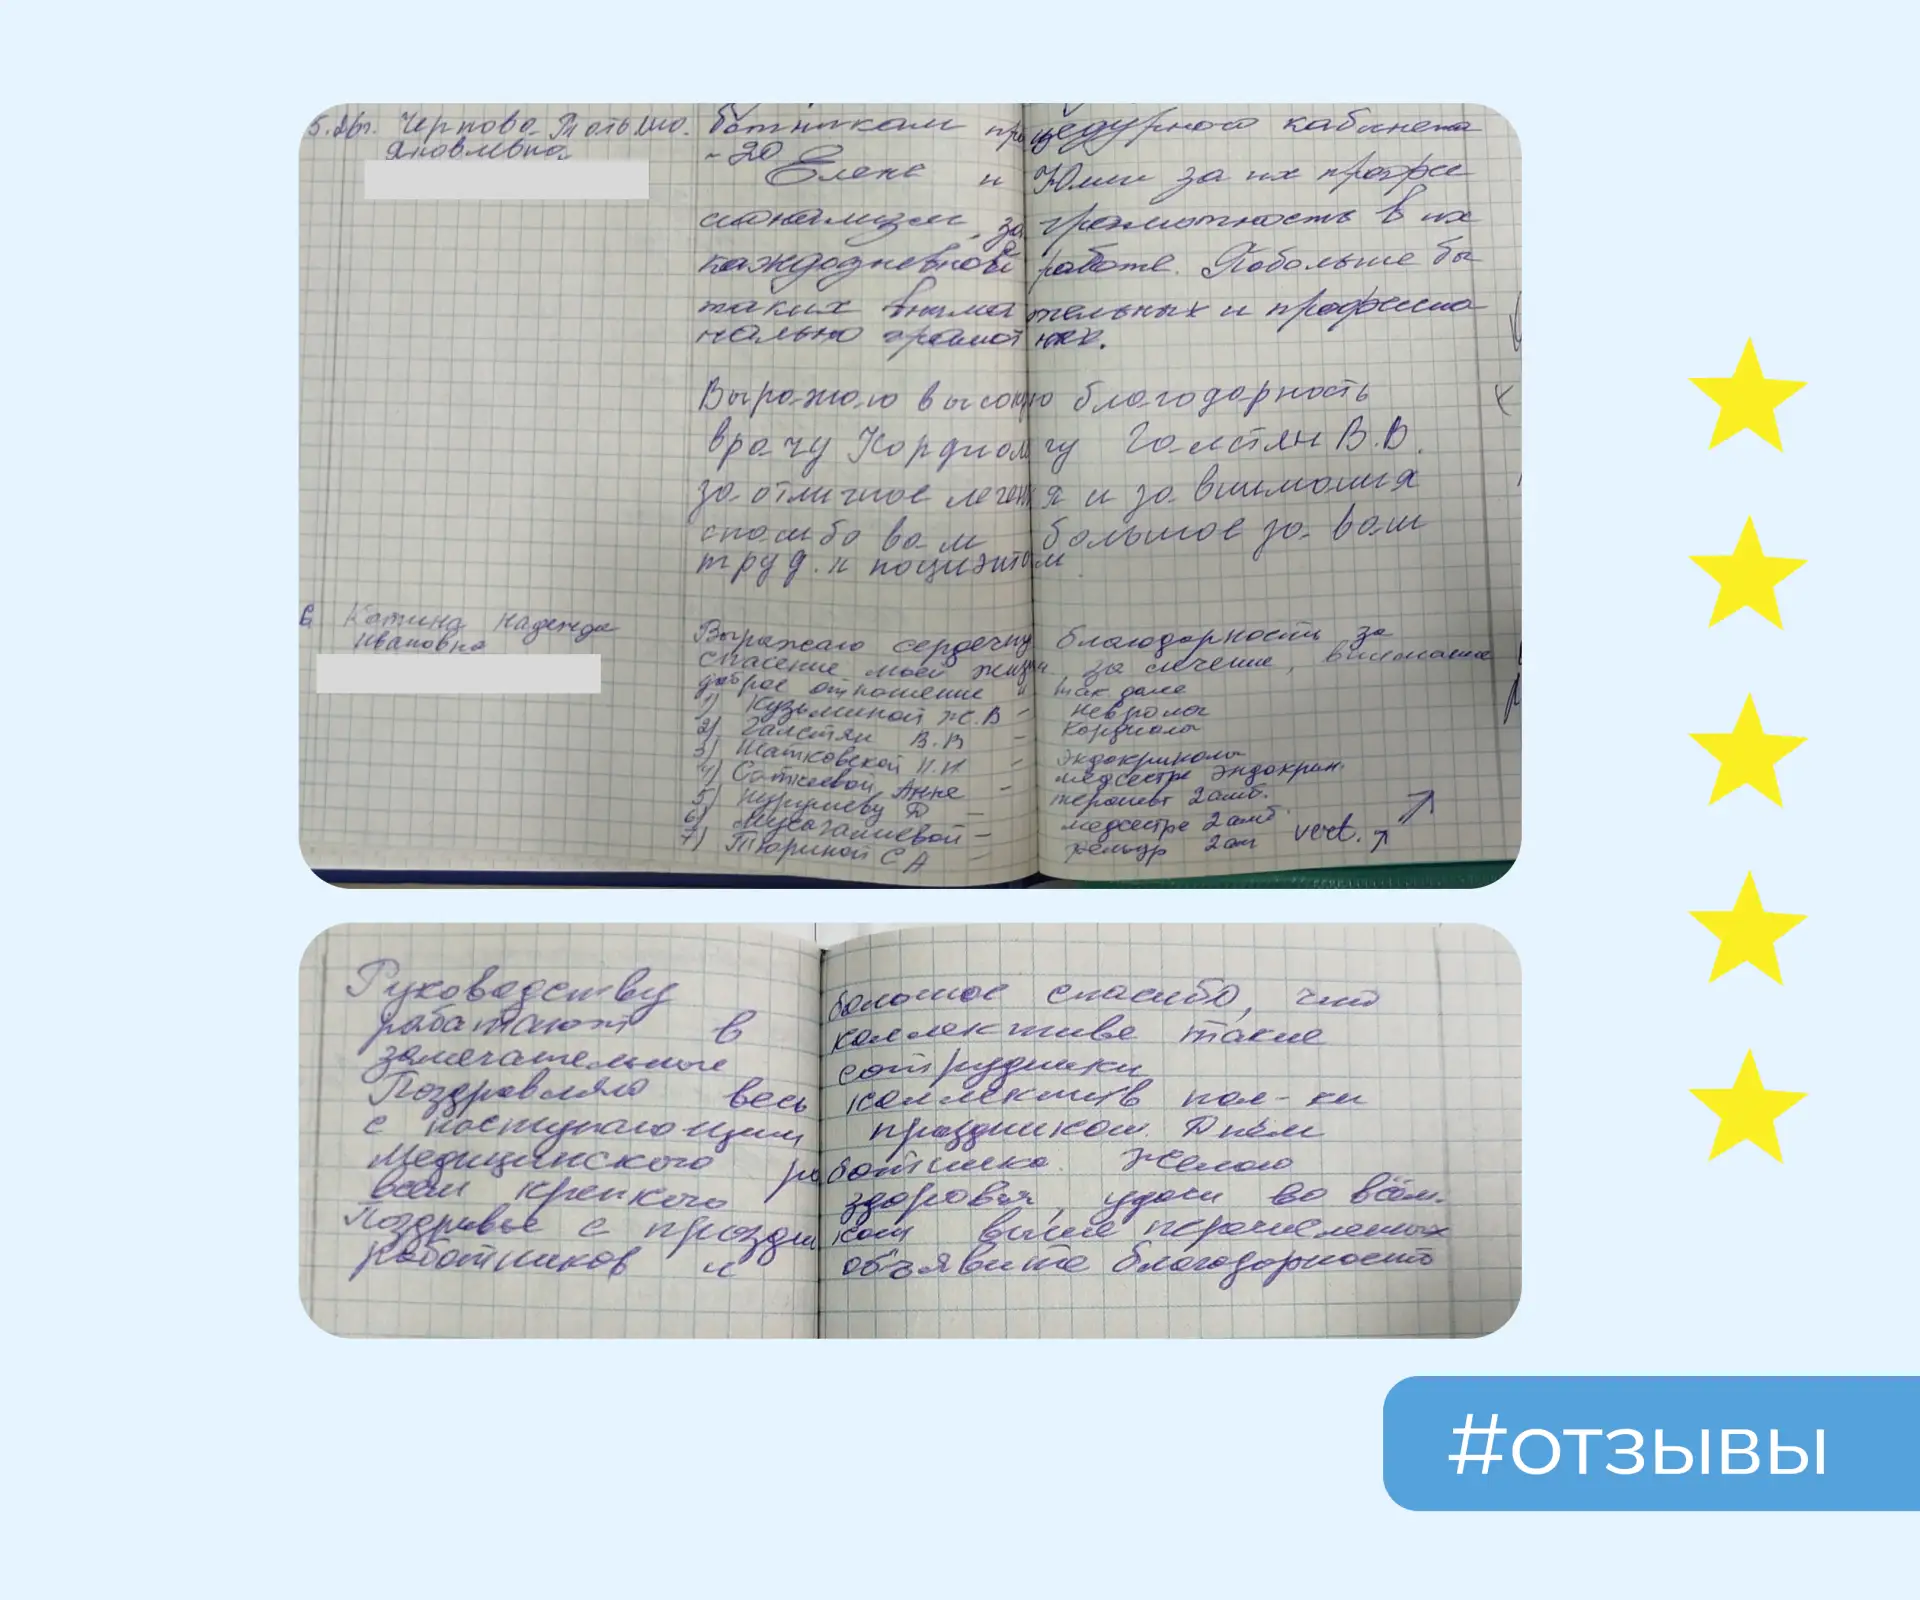 5.26г. Чернова Татьяна
Яковлевна
ботникам процедурного кабинета
~20
Елене и Юлии за их профес
сионализм, за грамотность в их
каждодневной работе. Побольше бы
таких внимательных и професио
нально грамотных.
Выражаю высокую благодарность
врачу Кардиологу Галстян В.В.
за отличное лечения и за внимания
спасибо вам большое за ваш
труд. к пациэнтам
Катина Надежда
Ивановна
Выражаю сердечну благодарность за
спасение моей жизни за лечение, внимание
доброе отношение и так дале
1) Кузьминой Ж.В - невролог
2) Галстян В.В - кардиолог
3) Шатковской И.И - эндокринолог
4) Анне - медсестре эндокрин.
5) Д - терапевт 2 амб.
6) - медсестре 2 амб.
7) Тюриной С А - фельдр 2 ам vert.
Руководству большое спасибо, что
работают в коллективе такие
замечательные сотрудники
Поздравляю весь коллектив пол-ки
с наступающим праздником Днём
Медицинского работника. Желаю
всем крепкого здоровья, удачи во всём.
Поздравье с праздником выше перечисленных
работников и объявите благодарность
#ОТЗЫВЫ